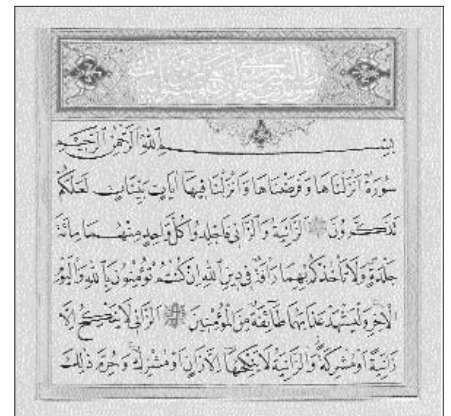 بِسْمِ اللهِ الرَّحْمٰنِ الرَّحِيمِ
سُورَةٌ اَنْزَلْنَاهَا وَفَرَضْنَاهَا وَاَنْزَلْنَا فِيهَا اٰيَاتٍ بَيِّنَاتٍ لَعَلَّكُمْ
تَذَكَّرُونَ اَلزَّانِيَةُ وَالزَّانِي فَاجْلِدُوا كُلَّ وَاحِدٍ مِنْهُمَا مِائَةَ
جَلْدَةٍ وَلَا تَأْخُذْكُمْ بِهِمَا رَأْفَةٌ فِي دِينِ اللهِ اِنْ كُنْتُمْ تُؤْمِنُونَ بِاللهِ وَالْيَوْمِ
الْاٰخِرِ وَلْيَشْهَدْ عَذَابَهُمَا طَائِفَةٌ مِنَ الْمُؤْمِنِينَ اَلزَّانِي لَا يَنْكِحُ اِلَّا
زَانِيَةً اَوْ مُشْرِكَةً وَالزَّانِيَةُ لَا يَنْكِحُهَا اِلَّا زَانٍ اَوْ مُشْرِكٌ وَحُرِّمَ ذٰلِكَ